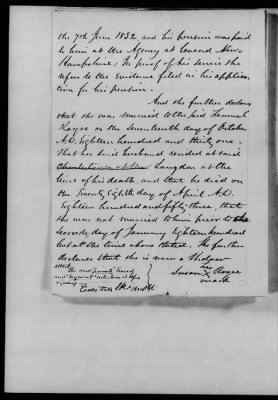 the 7th June 1832 and his pension was paid
to him at the Agency at Concord New
Hampshire; In proof of his service she
refers to the Evidence filed in his applica
tion for his pension.
And she further declares
that she was married to the said Samuel
Royce on the Seventeenth day of October
A.D. Eighteen hundred and thirty one.
That her said husband resided at said
Langdon at the
time of his death, and that he died on
the Twenty Eighth day of April A.D.
Eighteen hundred and fifty three, that
she was not married to him prior to the
second day of January Eighteen hundred
but at the time above stated. She further
declares that she is now a Widow
her
Susan X Royce
mark
attest
the word
and
signing